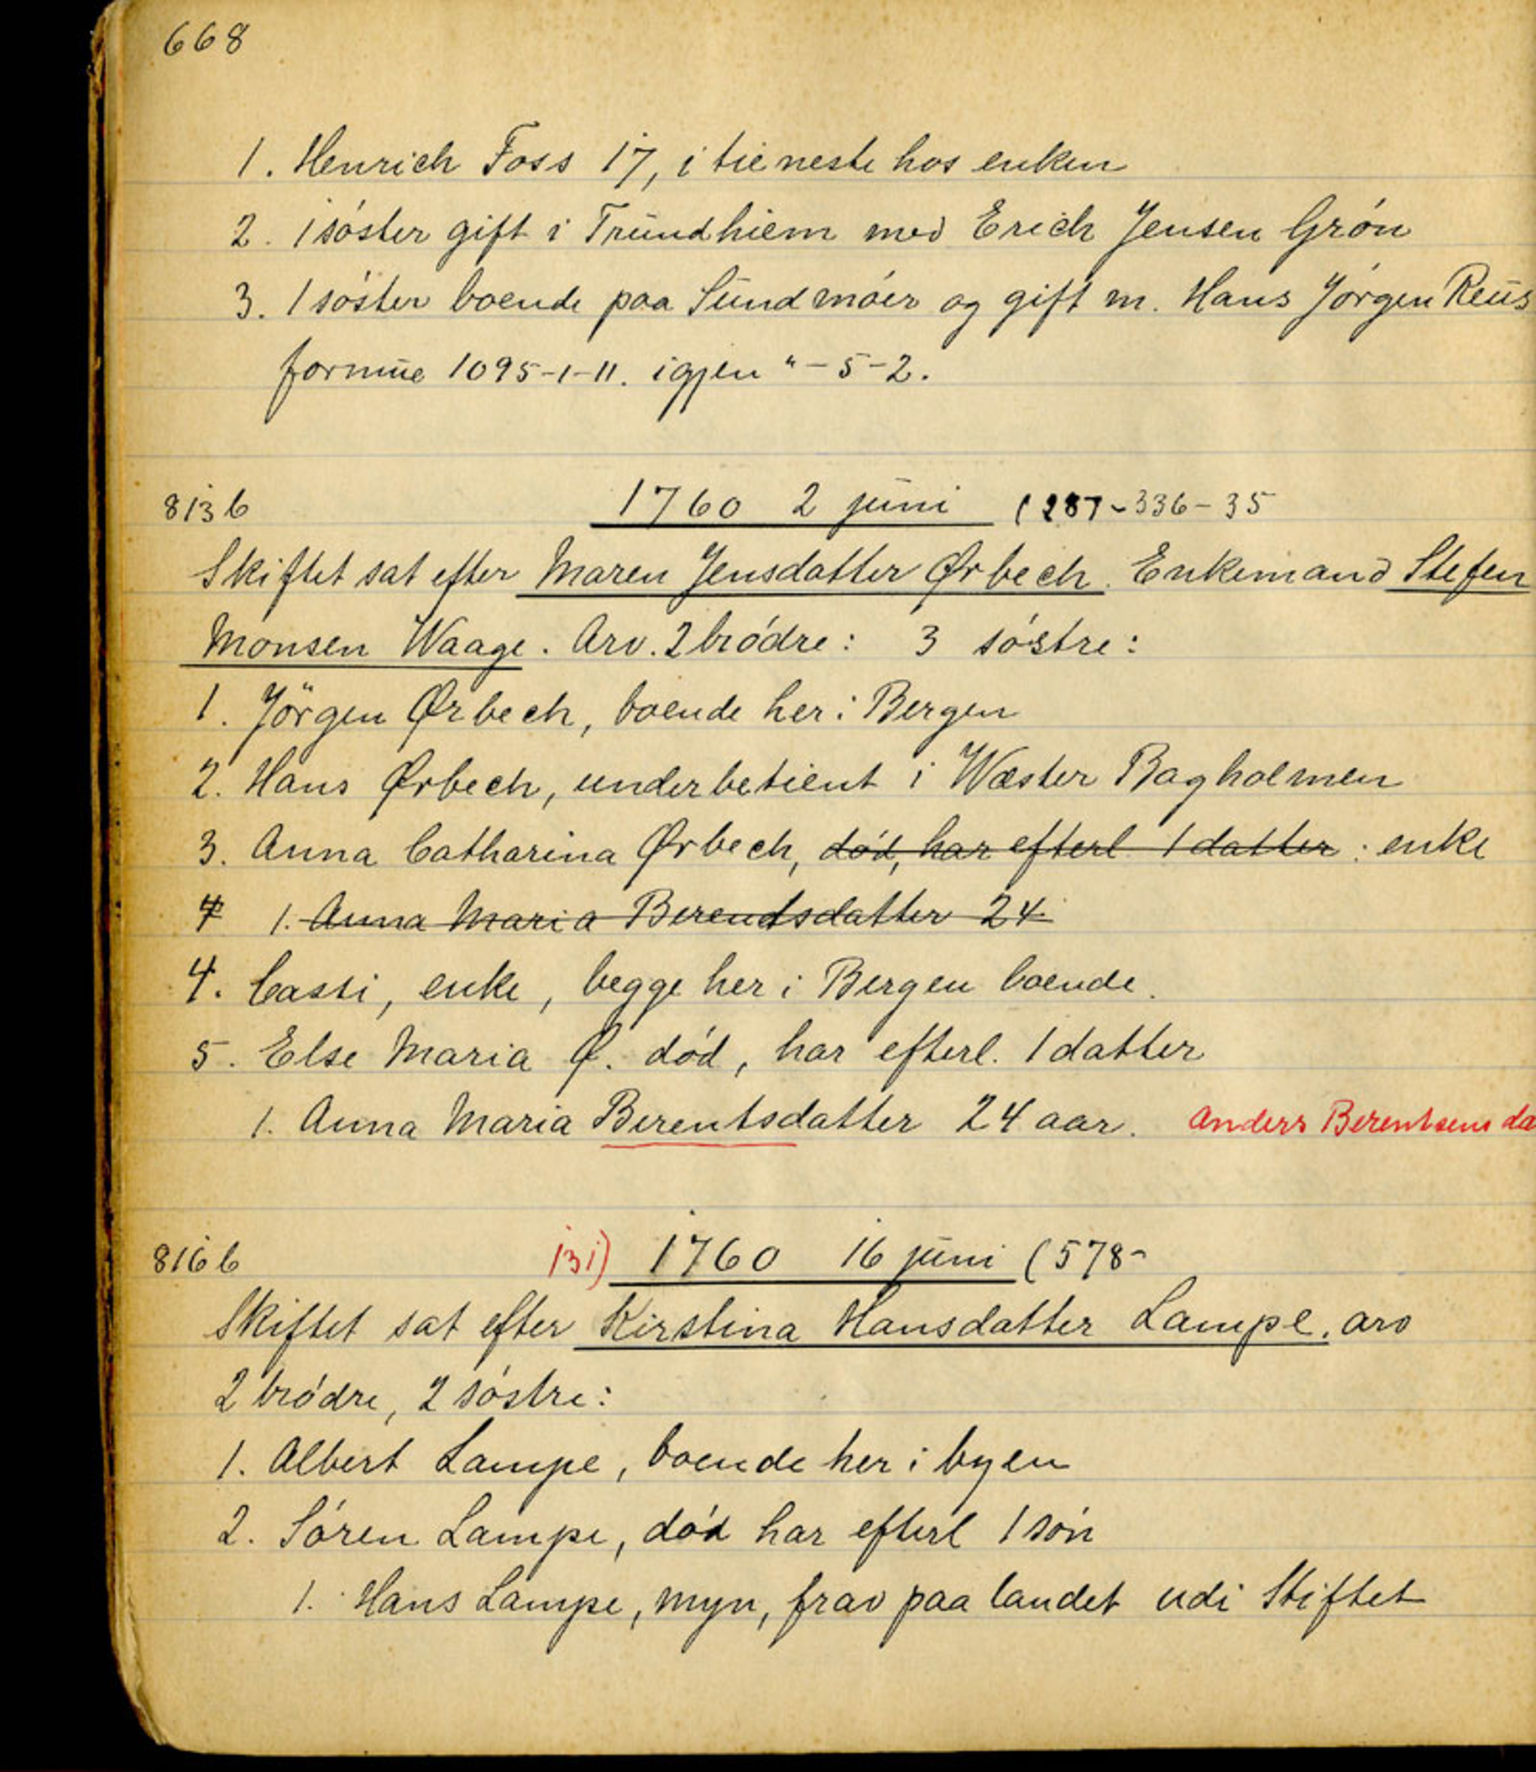 668
1. Henrich Foss 17, i tieneste hos enken
2. 1 söster gift i Trundhiem med Erich Jensen Grön
3. 1 söster boende paa Sundmöer og gift m. Hans Jörgen Reus
formue 1095-1-11. igjen "-5-2.
813 b 1760 2 juni (287-336-35
Skiftet sat efter Maren Jensdatter Ørbech. Enkemand Stefen
Monsen Waage. Arv. 2 brödre: 3 söstre:
1. Jörgen Ørbech, boende her i Bergen
2. Hans Ørbech, underbetient i Wæster Bagholmen
3. Anna Catharina Ørbech, död, har efterl 1 datter : enke
4 1. Anna Maria Berendsdatter 24
4. Cassi, enke, begge her i Bergen boende.
5. Else Maria Ø. död, har efterl. 1 datter
1. Anna Maria Berentsdatter 24 aar. Anders Berentsens da
816 b 131) 1760 16 juni (578-
Skiftet sat efter Kirstina Hansdatter Lampe. arv
2 brödre, 2 söstre:
1. Albert Lampe, boende her i byen
2. Sören Lampe, död har efterl 1 sön
1. Hans Lampe, myn, frav paa landet udi Stiftet